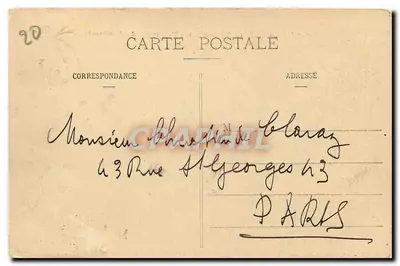 20
CARTE POSTALE
CORRESPONDANCE
ADRESSE
M
Monsieur
43 Rue St Georges 43
PARIS